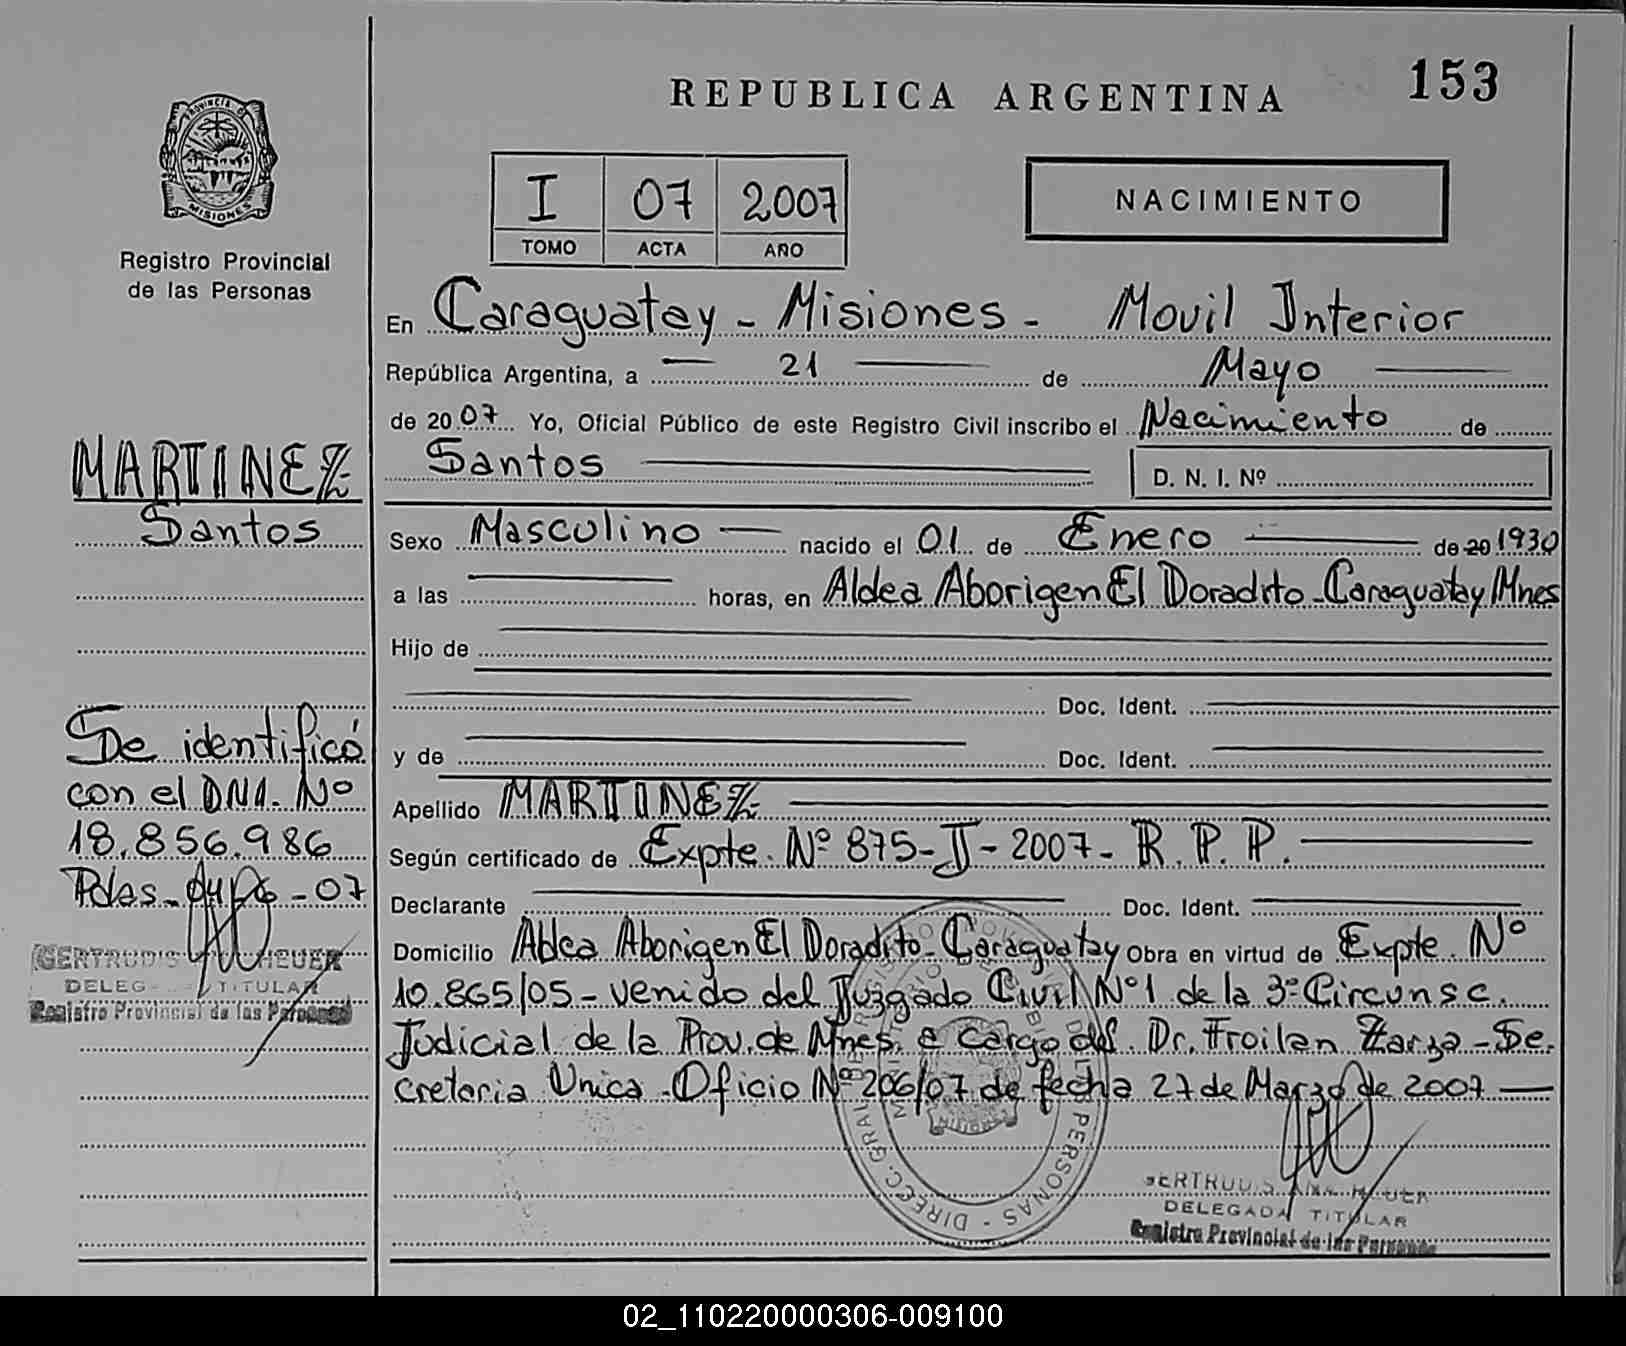 153
REPUBLICA ARGENTINA
PROVINCIA DE
MISIONES
Registro Provincial
de las Personas
I 07 2007
TOMO ACTA AÑO
NACIMIENTO
En Caraguatay - Misiones - Movil Interior
República Argentina, a — 21 — de Mayo —
de 2007 Yo, Oficial Público de este Registro Civil inscribo el Nacimiento de
Santos —
D. N. I. Nº
MARTINEZ
Santos
Sexo Masculino — nacido el 01 de Enero — de 20 1930
a las — horas, en Aldea Aborigen El Doradito - Caraguatay Mnes
Hijo de —
— Doc. Ident. —
y de — Doc. Ident. —
Apellido MARTINEZ —
Según certificado de Expte. Nº 875-I-2007- R.P.P. —
Declarante — Doc. Ident. —
Domicilio Aldea Aborigen El Doradito - Caraguatay Obra en virtud de Expte. Nº
10.865/05 - venido del Juzgado Civil Nº 1 de la 3ª Circunsc.
Judicial de la Prov. de Mnes. a cargo del Dr. Froilan Zarza - Se.
cretaria Unica - Oficio Nº 206/07 de fecha 27 de Marzo de 2007 —
Se identificó
con el DNI. Nº
18.856.986
Pdas - 04/06 - 07
GERTRUDIS HEUER
DELEG TITULAR
Registro Provincial de las Personas
DIRECC. GRAL PERSONAS
GERTRUDIS ANA HEUER
DELEGADA TITULAR
Registro Provincial de las Personas
02_110220000306-009100